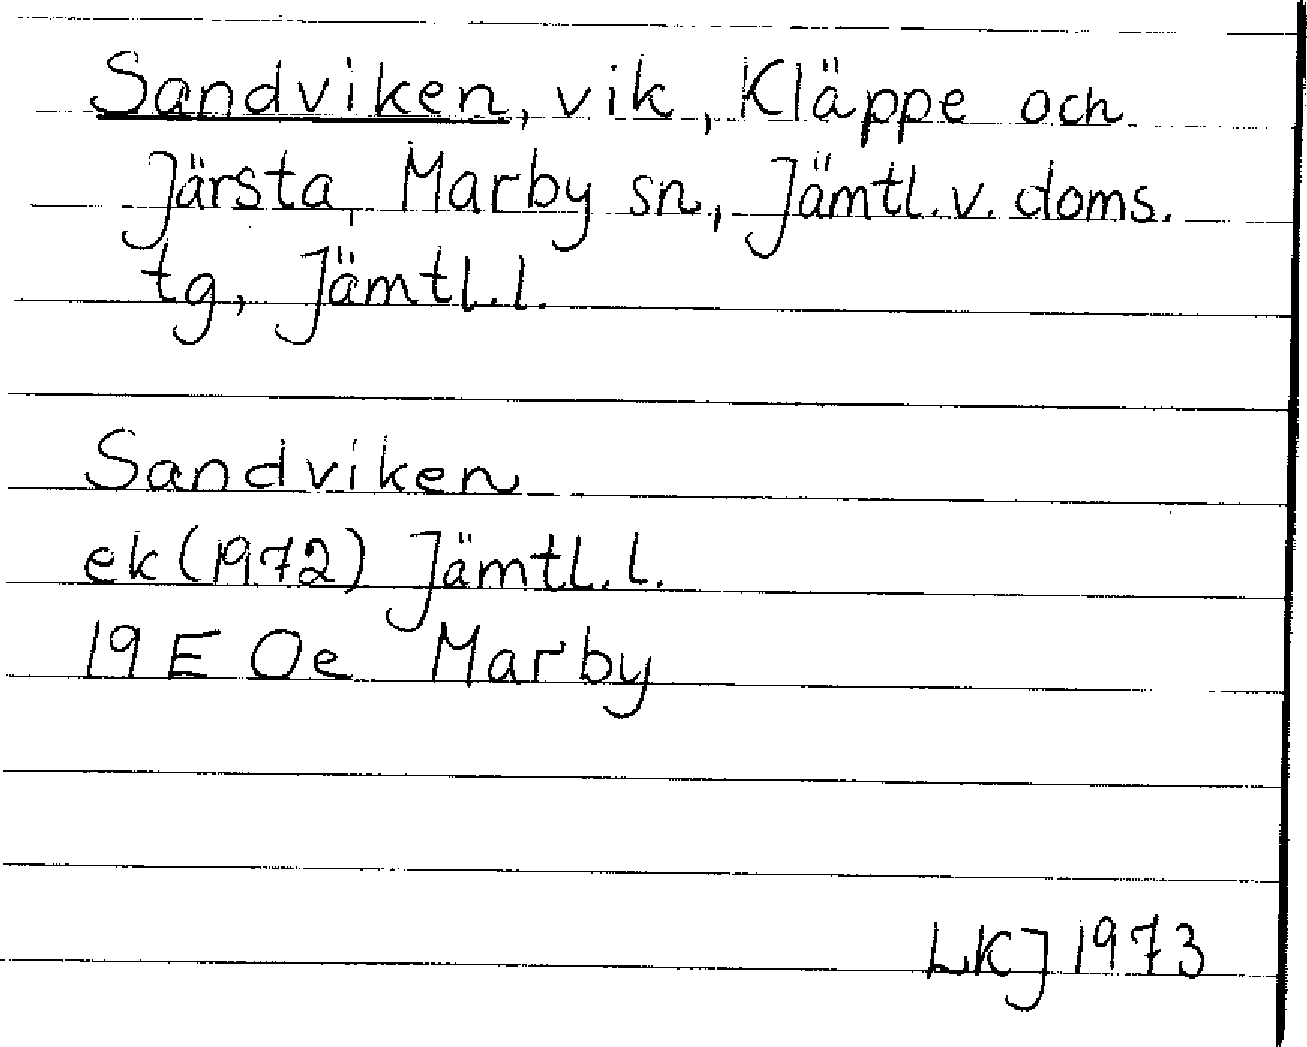 Sandviken, vik, Kläppe och
Järsta, Marby sn, Jämtl. v. doms.
tg, Jämtl. l.
Sandviken
ek (1972) Jämtl. l.
19 E 0e Marby
LKJ 1973